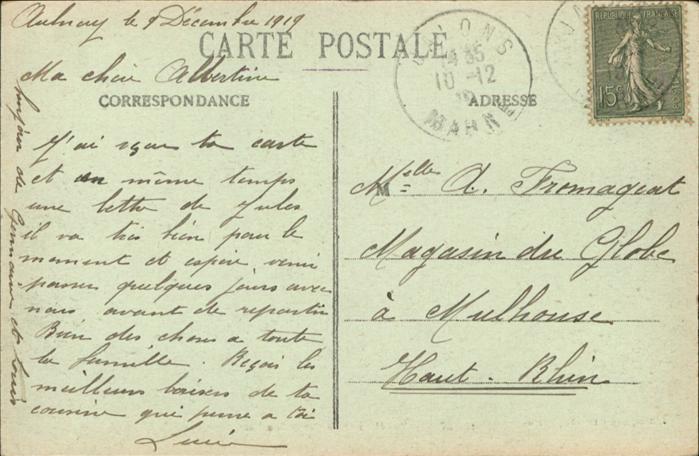 Aulnay le 9 Décembre 1919
CARTE POSTALE
Ma chère Albertine
CORRESPONDANCE
J'ai reçu ta carte
et en même temps
une lettre de Jules
il va très bien pour le
moment et espère venir
passer quelques jours avec
nous avant de repartir
Bien des choses à toute
la famille. Reçois les
meilleurs baisers de ta
cousine qui pense à toi
Lucie
de Germaine et Louis
ADRESSE
Melle A. Fromageat
Magasin du Globe
à Mulhouse
Haut-Rhin
CHALONS
4 35
10-12
MARNE
REPUBLIQUE FRANÇAISE
15c